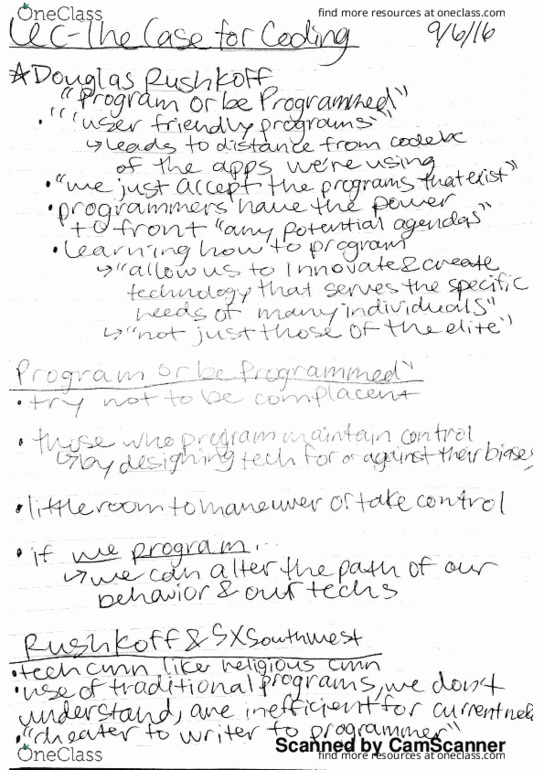 OneClass find more resources at oneclass.com
LEC-The Case for Coding 9/6/16
☆Douglas Rushkoff
"Program or be Programmed"
• "'user friendly programs'"
↳leads to distance from codebc
of the apps we're using
• "we just accept the programs that exist"
• programmers have the power
to front "any potential agendas"
• learning how to program
↳"allow us to innovate & create
technology that serves the specific
needs of many individuals"
↳"not just those of the elite"
Program or be Programmed"
• try not to be complacent
• those who program maintain control
↳by designing tech for or against their biases
• little room to maneuver or take control
• if we program...
↳we can alter the path of our
behavior & our techs
Rushkoff & SXSouthwest
• tech cmn like religious cmn
• use of traditional programs, we don't
understand, are inefficient for current
• "theater to writer to programmer"
Scanned by CamScanner
OneClass find more resources at oneclass.com